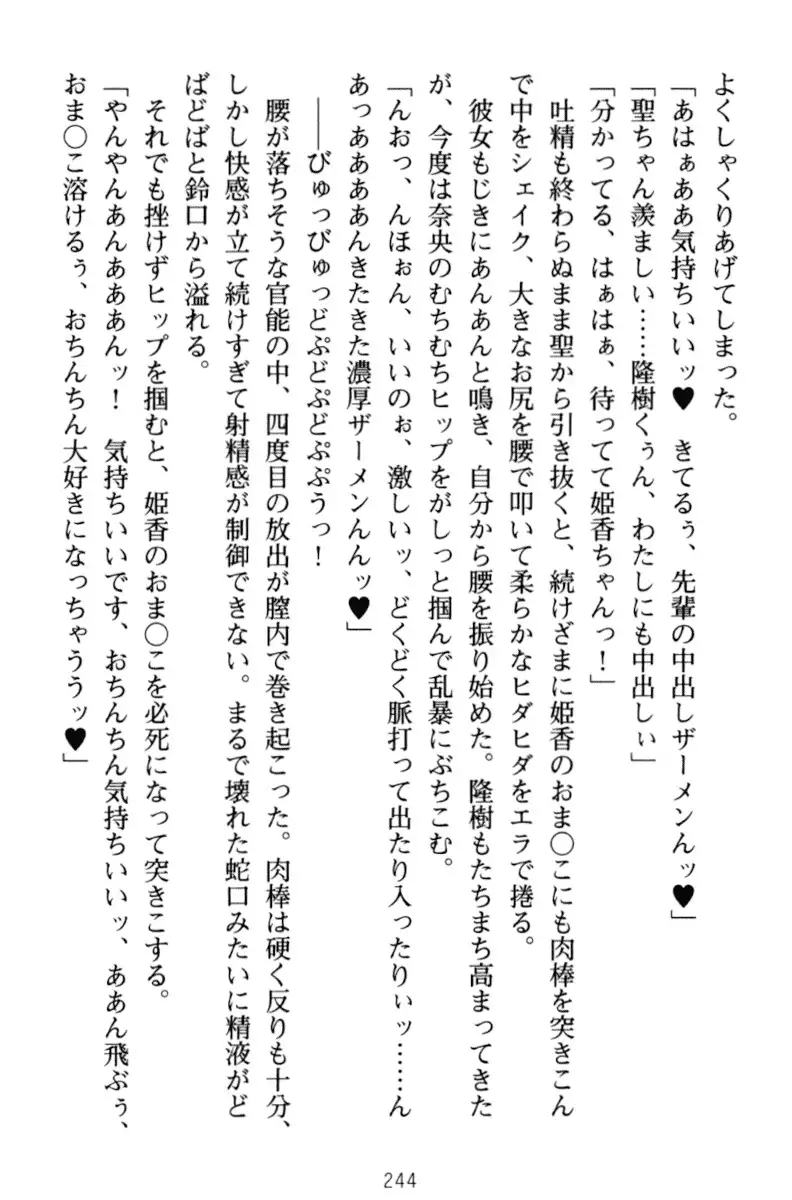 よくしゃくりあげてしまった。
「あはぁああ気持ちいいッ♥　きてるぅ、先輩の中出しザーメンんッ♥」
「聖ちゃん羨ましい……隆樹くぅん、わたしにも中出しぃ」
「分かってる、はぁはぁ、待ってて姫香ちゃんっ！」
　吐精も終わらぬまま聖から引き抜くと、続けざまに姫香のおま〇こにも肉棒を突きこん
で中をシェイク、大きなお尻を腰で叩いて柔らかなヒダヒダをエラで捲る。
　彼女もじきにあんあんと鳴き、自分から腰を振り始めた。隆樹もたちまち高まってきた
が、今度は奈央のむちむちヒップをがしっと掴んで乱暴にぶちこむ。
「んおっ、んほぉん、いいのぉ、激しいッ、どくどく脈打って出たり入ったりぃッ……ん
あっああああんきたきた濃厚ザーメンんんッ♥」
　――びゅっびゅっどぷどぷどぷぷうっ！
　腰が落ちそうな官能の中、四度目の放出が膣内で巻き起こった。肉棒は硬く反りも十分、
しかし快感が立て続けすぎて射精感が制御できない。まるで壊れた蛇口みたいに精液がど
ばどばと鈴口から溢れる。
　それでも挫けずヒップを掴むと、姫香のおま〇こを必死になって突きこする。
「やんやんあんあああんッ！　気持ちいいです、おちんちん気持ちいいッ、ああん飛ぶぅ、
おま〇こ溶けるぅ、おちんちん大好きになっちゃううッ♥」
244